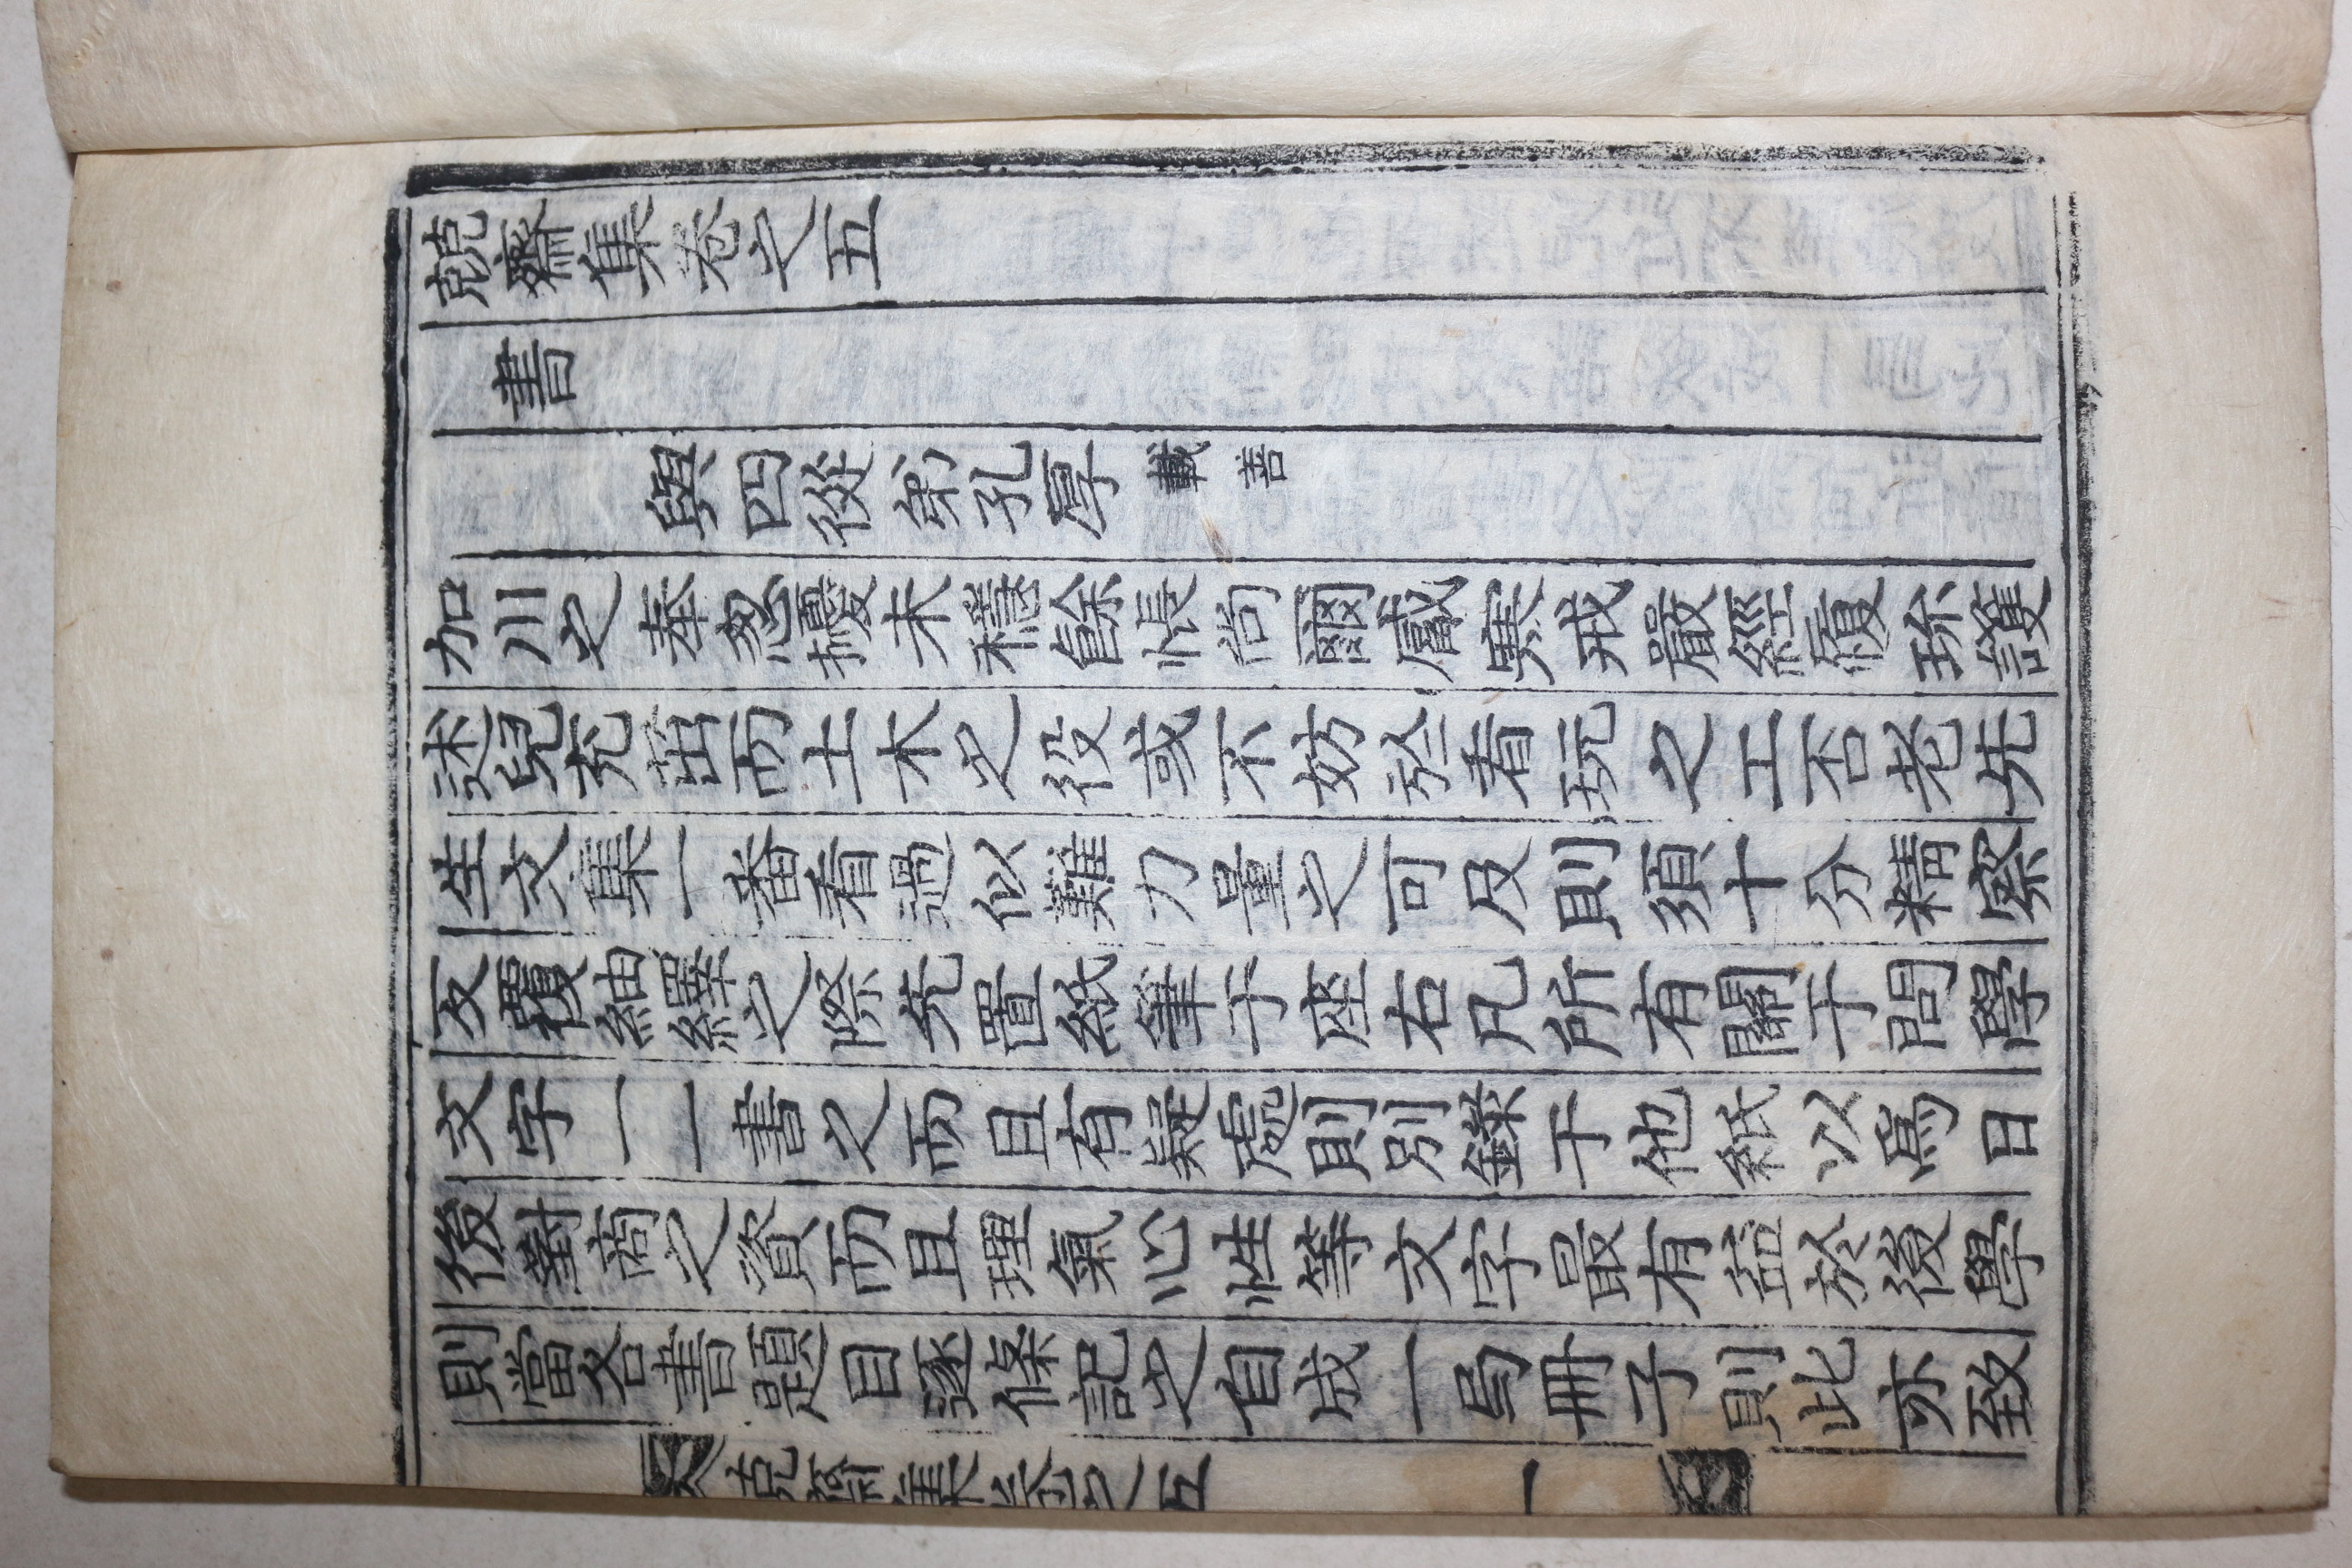 兢齋集卷之五
書
與四從弟孔厚 載善
加川之奉忽擾未穩餘悵尚爾嚴寒戒嚴經履珎護
述兒充茁而土木之役或不妨於看玩之工否老先
生文集一番看過似難力量之可及則須十分精察
反覆紬繹之際先置紙筆于座右凡所有關于問學
文字一一書之而且有疑處則別錄于他紙以爲日
後對商之資而且理氣心性等文字最有益於後學
則當各書題目逐條記之自成一局冊子則此亦致
兢齋集卷之五 一